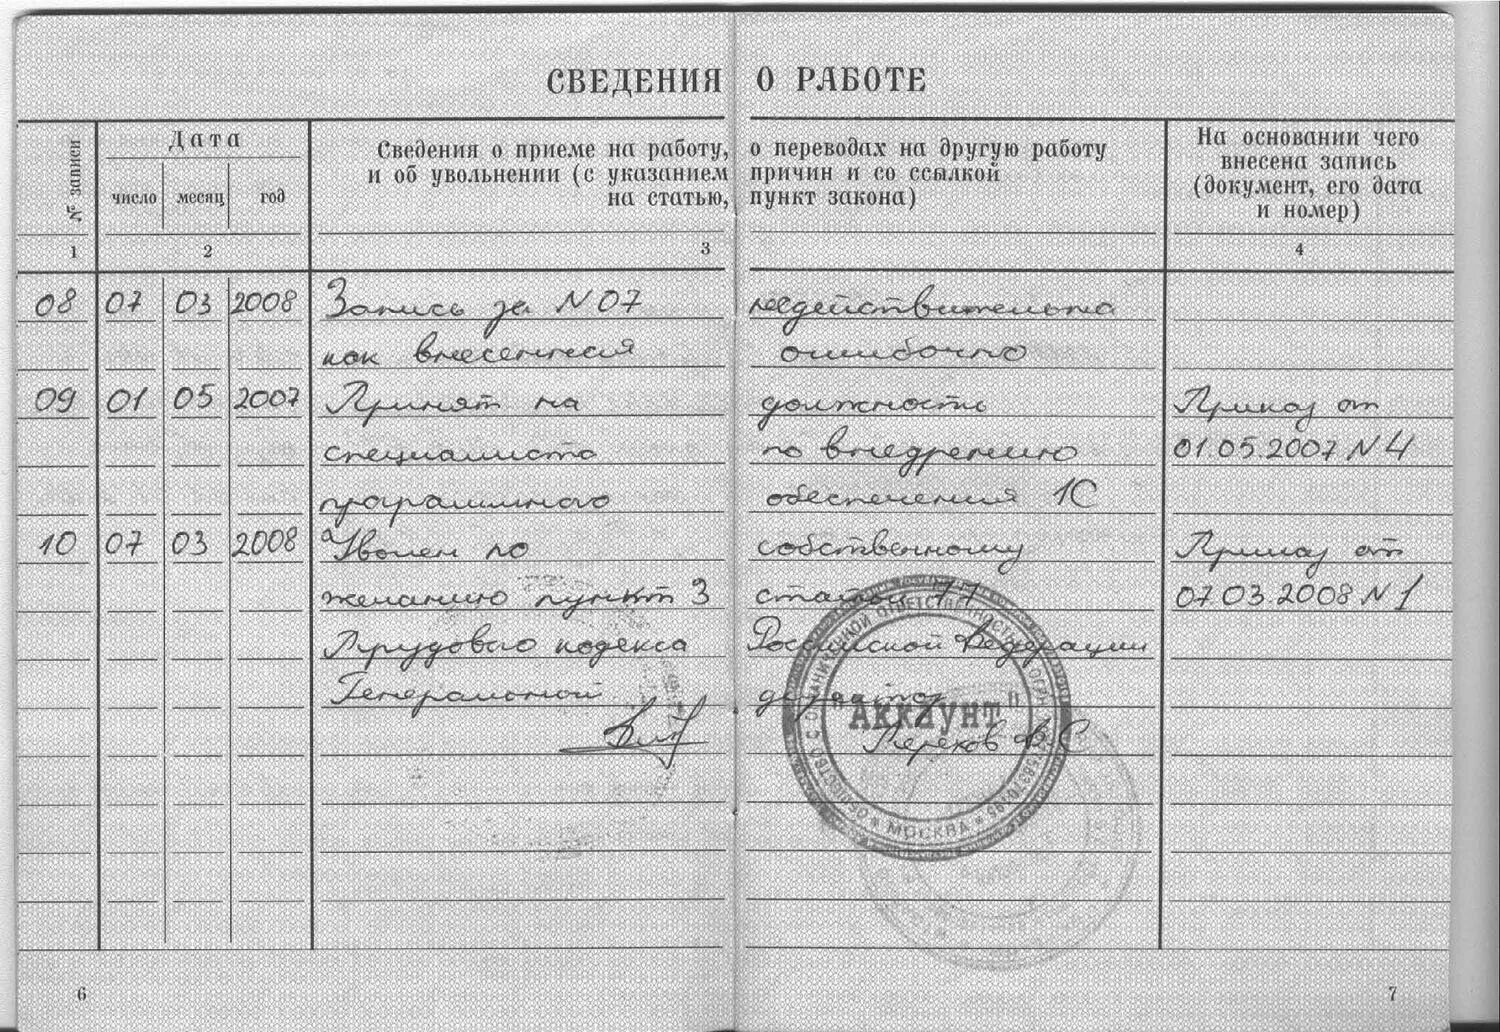 СВЕДЕНИЯ О РАБОТЕ
№ записи
Дата
число месяц год
Сведения о приеме на работу, о переводах на другую работу
и об увольнении (с указанием причин и со ссылкой
на статью, пункт закона)
На основании чего
внесена запись
(документ, его дата
и номер)
1 2 3 4
08 07 03 2008 Запись за N 07 недействительна
как внесенная ошибочно
09 01 05 2007 Принят на должность Приказ от
специалиста по внедрению 01.05.2007 N 4
программного обеспечения 1С
10 07 03 2008 Уволен по собственному Приказ от
желанию пункт 3 статьи 77 07.03.2008 N 1
Трудового кодекса Российской Федерации
Генеральный директор
"Аккаунт"
ОБЩЕСТВО С ОГРАНИЧЕННОЙ ОТВЕТСТВЕННОСТЬЮ
ОГРН
МОСКВА
6
7